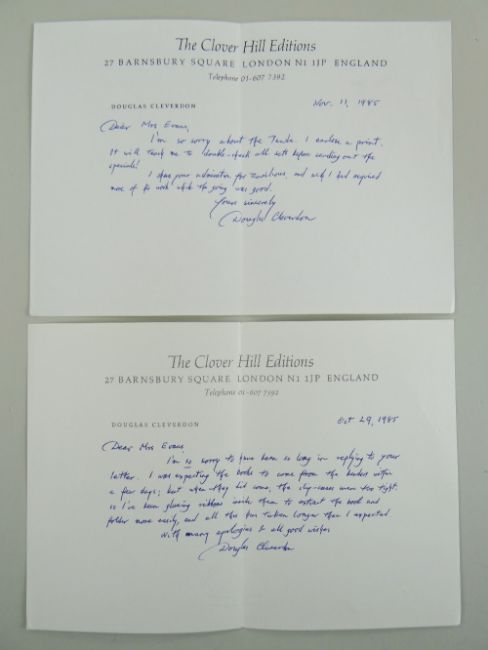 The Clover Hill Editions
27 BARNSBURY SQUARE LONDON N1 1JP ENGLAND
Telephone 01-607 7392
DOUGLAS CLEVERDON
Nov. 11, 1985
Dear Mrs Evans,
I'm so sorry about the I enclose a print.
It will teach me to double-check all sets before sending out the
specials!
I share your admiration for and wish I had acquired
more of his work while the going was good.
Yours sincerely
Douglas Cleverdon
The Clover Hill Editions
27 BARNSBURY SQUARE LONDON N1 1JP ENGLAND
Telephone 01-607 7392
DOUGLAS CLEVERDON
Oct 29, 1985
Dear Mrs Evans,
I'm so sorry to have been so long in replying to your
letter. I was expecting the books to come from the binders within
a few days; but when they did come, the slip-cases were too tight.
So I've been glueing ribbons inside them to extract the book and
folder more easily, and all this has taken longer than I expected
With many apologies & all good wishes
Douglas Cleverdon